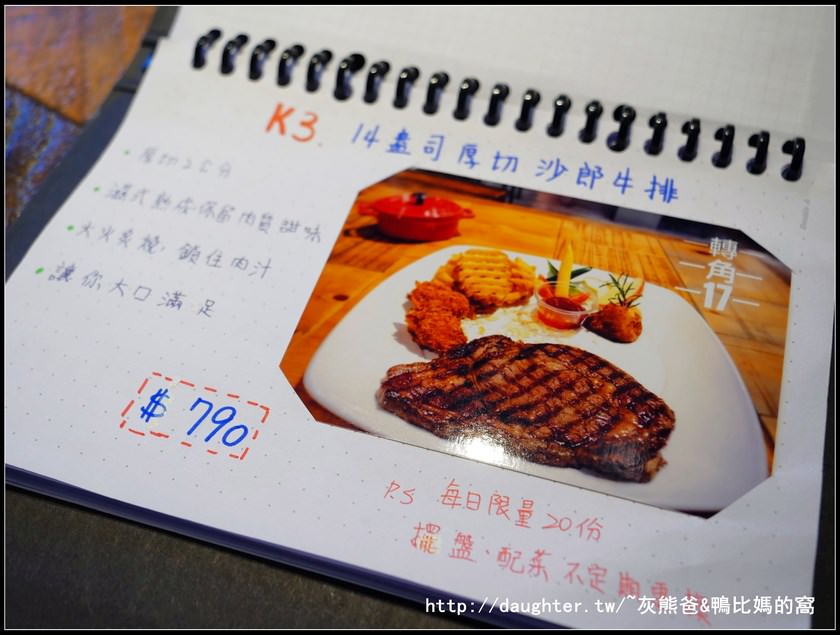 K3. 14盎司厚切沙郎牛排
厚切2.5分
濕式熟成保留肉質甜味
大火炙燒,鎖住肉汁
讓你大口滿足
$ 790
轉角17
P.S 每日限量20份
擺盤、配菜不定期更換
http://daughter.tw/~灰熊爸&鴨比媽的窩